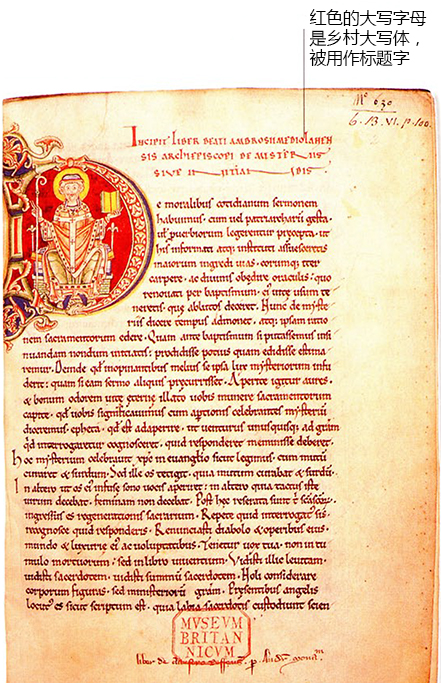 红色的大写字母
是乡村大写体，
被用作标题字
Mᵒ 630
6. 13. VI. p. 100.
INCIPIT LIBER BEATI AMBROSII MEDIOLANEN
SIS ARCHIEPISCOPI DE MISTERIIS
SIVE INITIANDIS.
D
e moralibus cotidianum sermonem
habuimus. cum vel patriarcharum gesta.
vel puerbiorum legerentur precepta. ut
his informati atq; instituti assuesceretis
maiorum ingredi vias. eorumq; iter
carpere. ac divinis obedire oraculis. quo
renovati per baptismum. ei vite usum te
neretis. que ablutos deceret. Nunc de myste
riis dicere tempus admonet. atq; ipsam ratio
nem sacramentorum edere. Quam ante baptismum si putassemus insi
nuandam nondum initiatis. prodidisse potius quam edidisse estima
remur. Deinde qd inopinantibus melius se ipsa lux mysteriorum infu
derit. quam si eam sermo aliquis precurrisset. Aperite igitur aures.
& bonum odorem vite eterne
illato vobis munere sacramentorum
capite. qd vobis significavimus cum aptionis celebrantes mysterium
diceremus. epheta. qd est adaperire. ut venturus unusquisq; ad gram
qd interrogaretur cognosceret. quid responderet meminisse deberet.
hoc mysterium celebravit xpc in evanglio sicut legimus. cum mutu
curaret & surdum. Sed ille os tetigit. quia mutum curabat & surdu.
In altero ut os ei infuse sono vocis aperiret. in altero quia tactus iste
virum decebat. feminam non decebat. Post hec reserata sunt t sca scor.
ingressus es regenerationis sacrarium. Repete quid interrogat sis.
recognosce quid responderis. Renunciasti diabolo & operibus eius.
mundo & luxurie ei ac voluptatibus. Tenetur vox tua. non in tu
mulo mortuorum. sed in libro viventium. Vidisti illic levitam.
vidisti sacerdotem. vidisti summu sacerdotem. Noli considerare
corporum figuras. sed ministerioru gram. Presentibus angelis
locutus es sicut scriptum est. quia labia sacerdotis custodiunt scien
MVSEVM
BRITAN
NICVM
liber de